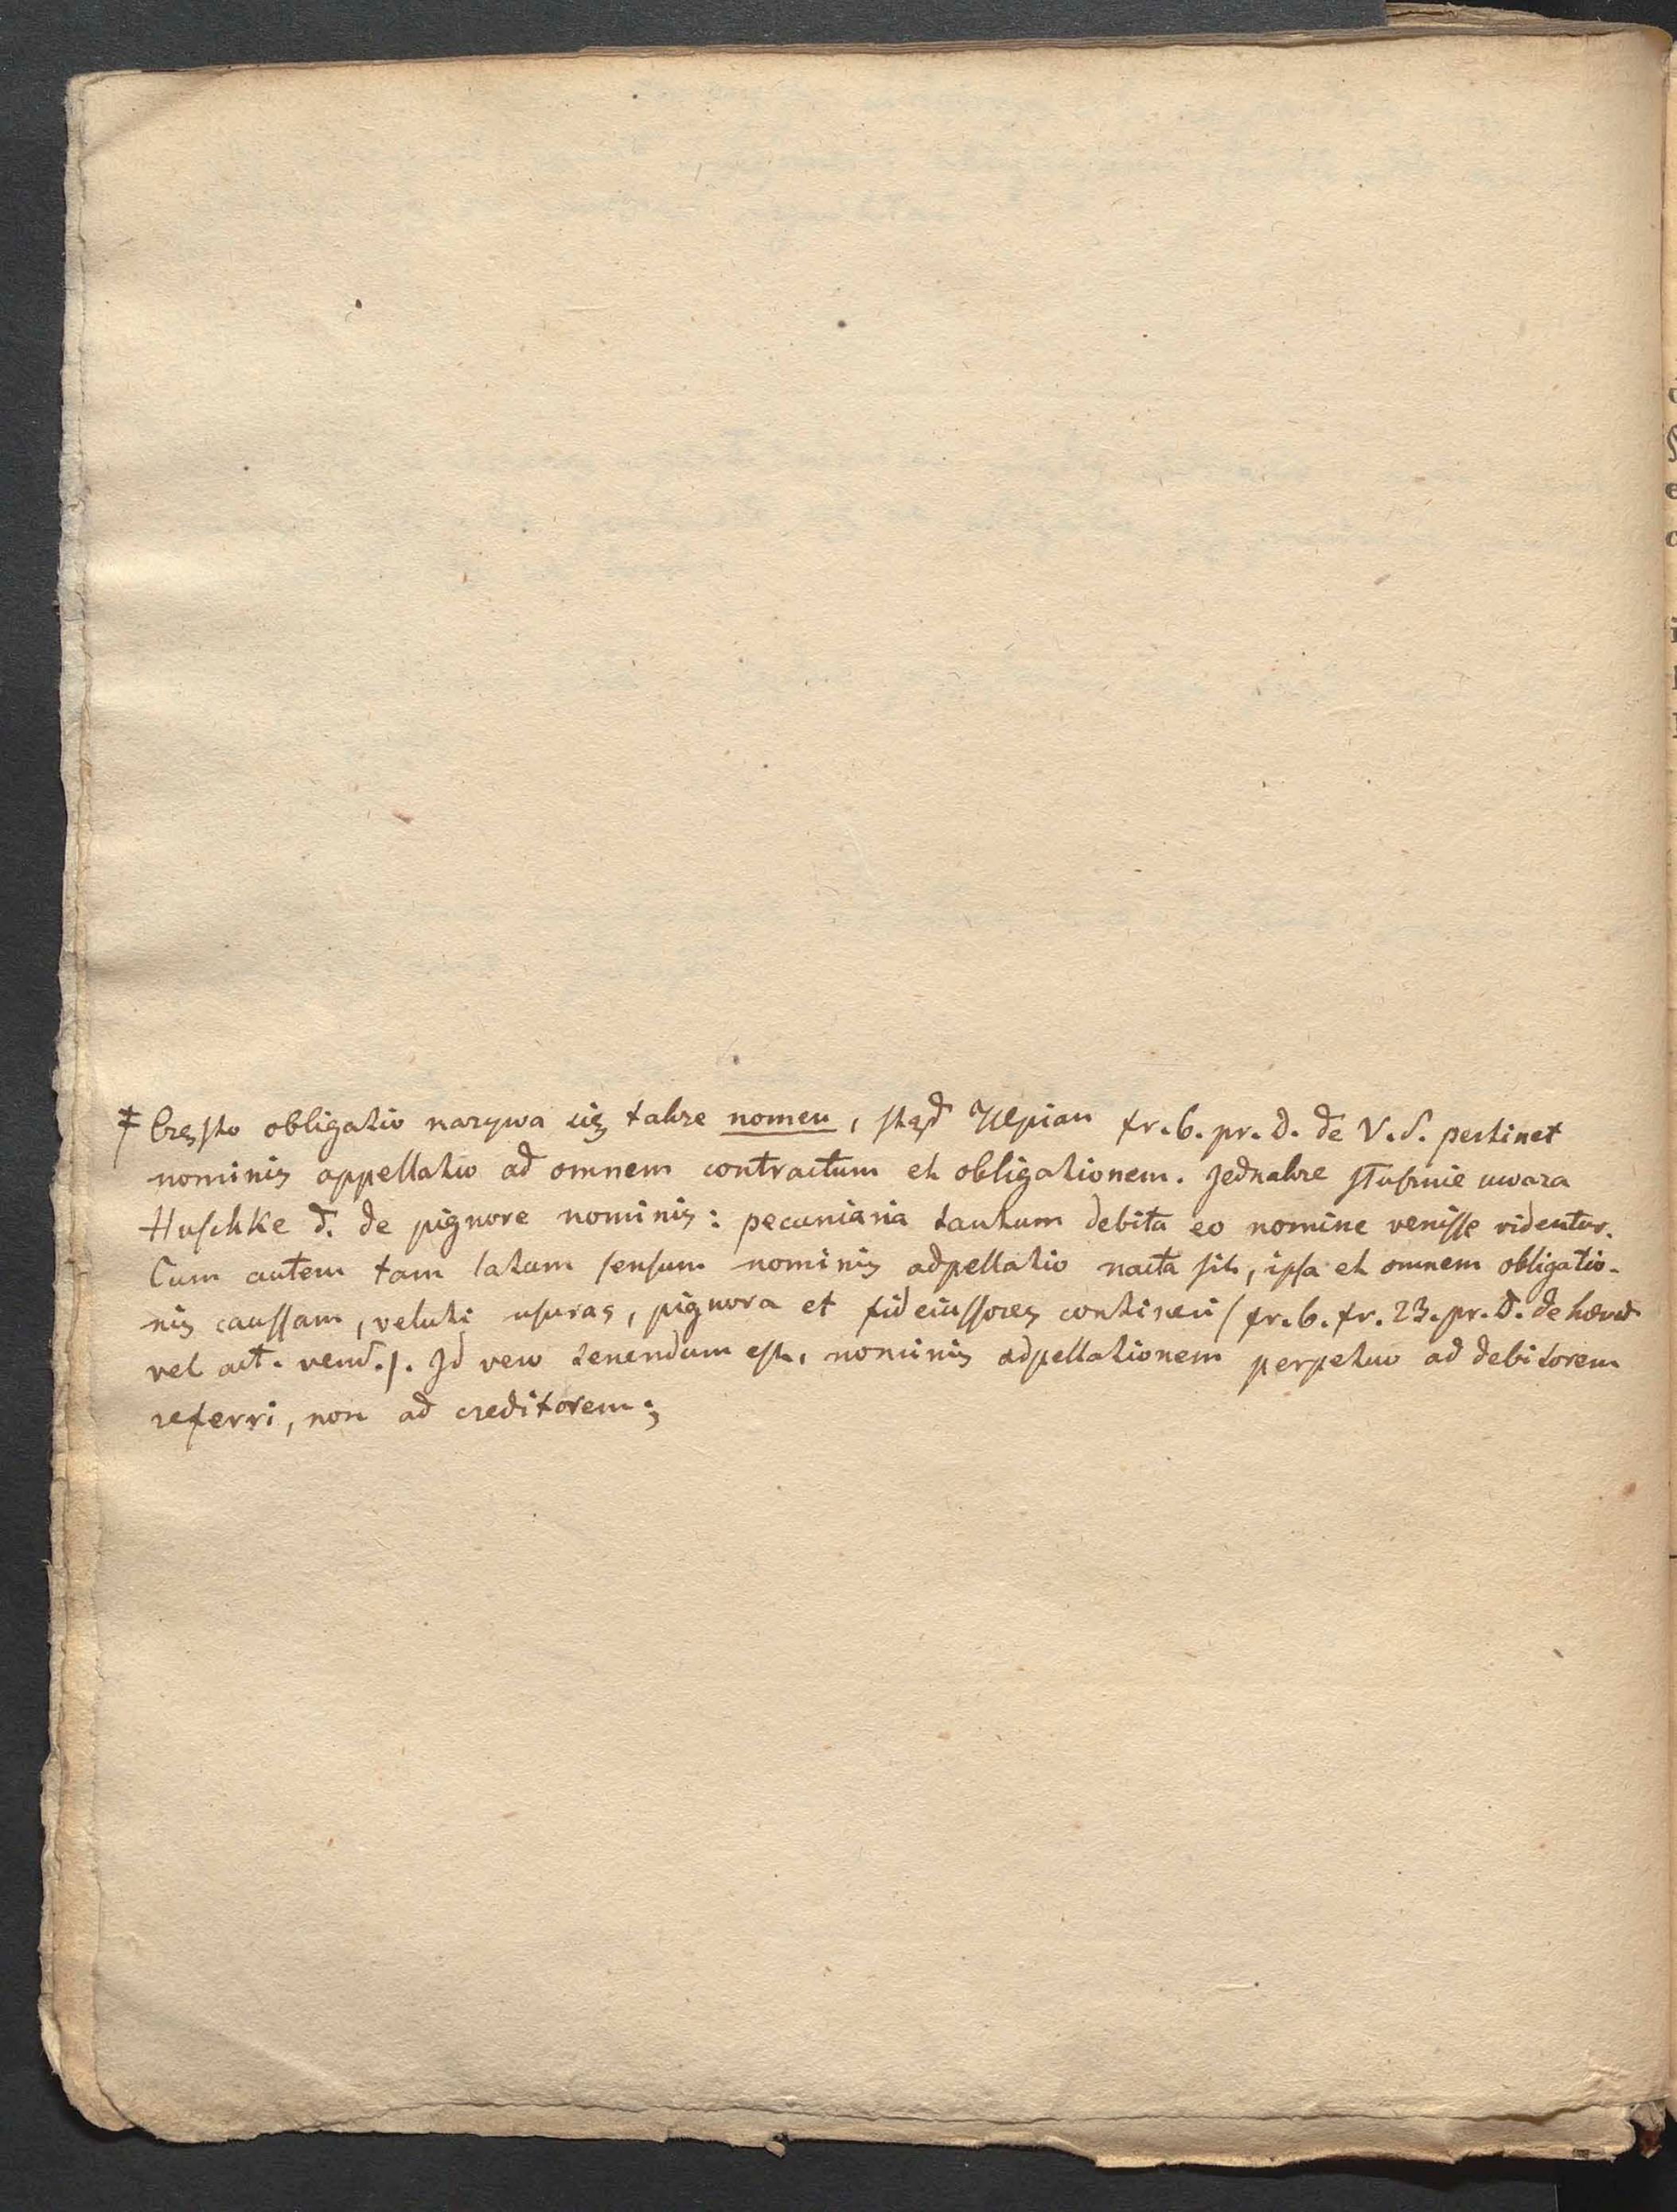 ‡ Często obligatio nazywa się także nomen, stąd Ulpian fr. 6. pr. D. de V. S. pertinet
nominis appellatio ad omnem contractum et obligationem. Jednakże słusznie uważa
Huschke d. de pignore nominis: pecuniaria tantum debita eo nomine venisse videntur.
Cum autem tam latum sensum nominis adpellatio nacta sit, ipsa et omnem obligatio-
nis caussam, veluti usuras, pignora et fideiussores contineri (fr. 6. fr. 23. pr. D. de hered.
vel act. vend.). Id vero tenendum est, nominis adpellationem perpetuo ad debitorem
referri, non ad creditorem;